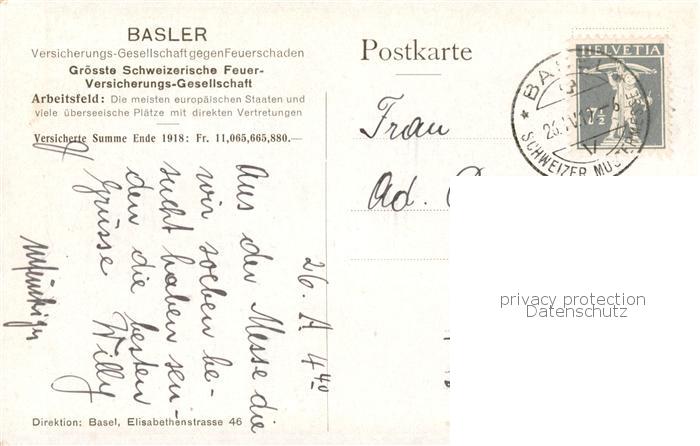 BASLER
Versicherungs-Gesellschaft gegen Feuerschaden
Grösste Schweizerische Feuer-
Versicherungs-Gesellschaft
Arbeitsfeld: Die meisten europäischen Staaten und
viele überseeische Plätze mit direkten Vertretungen
Versicherte Summe Ende 1918: Fr. 11,065,665,880.—
Aus der Messe die
wir soeben be-
sucht haben sen-
den die besten
Grüsse Willy
Direktion: Basel, Elisabethenstrasse 46
Postkarte
Frau
Ad.
HELVETIA
7½
BASEL
SCHWEIZER MUSTERMESSE
privacy protection
Datenschutz